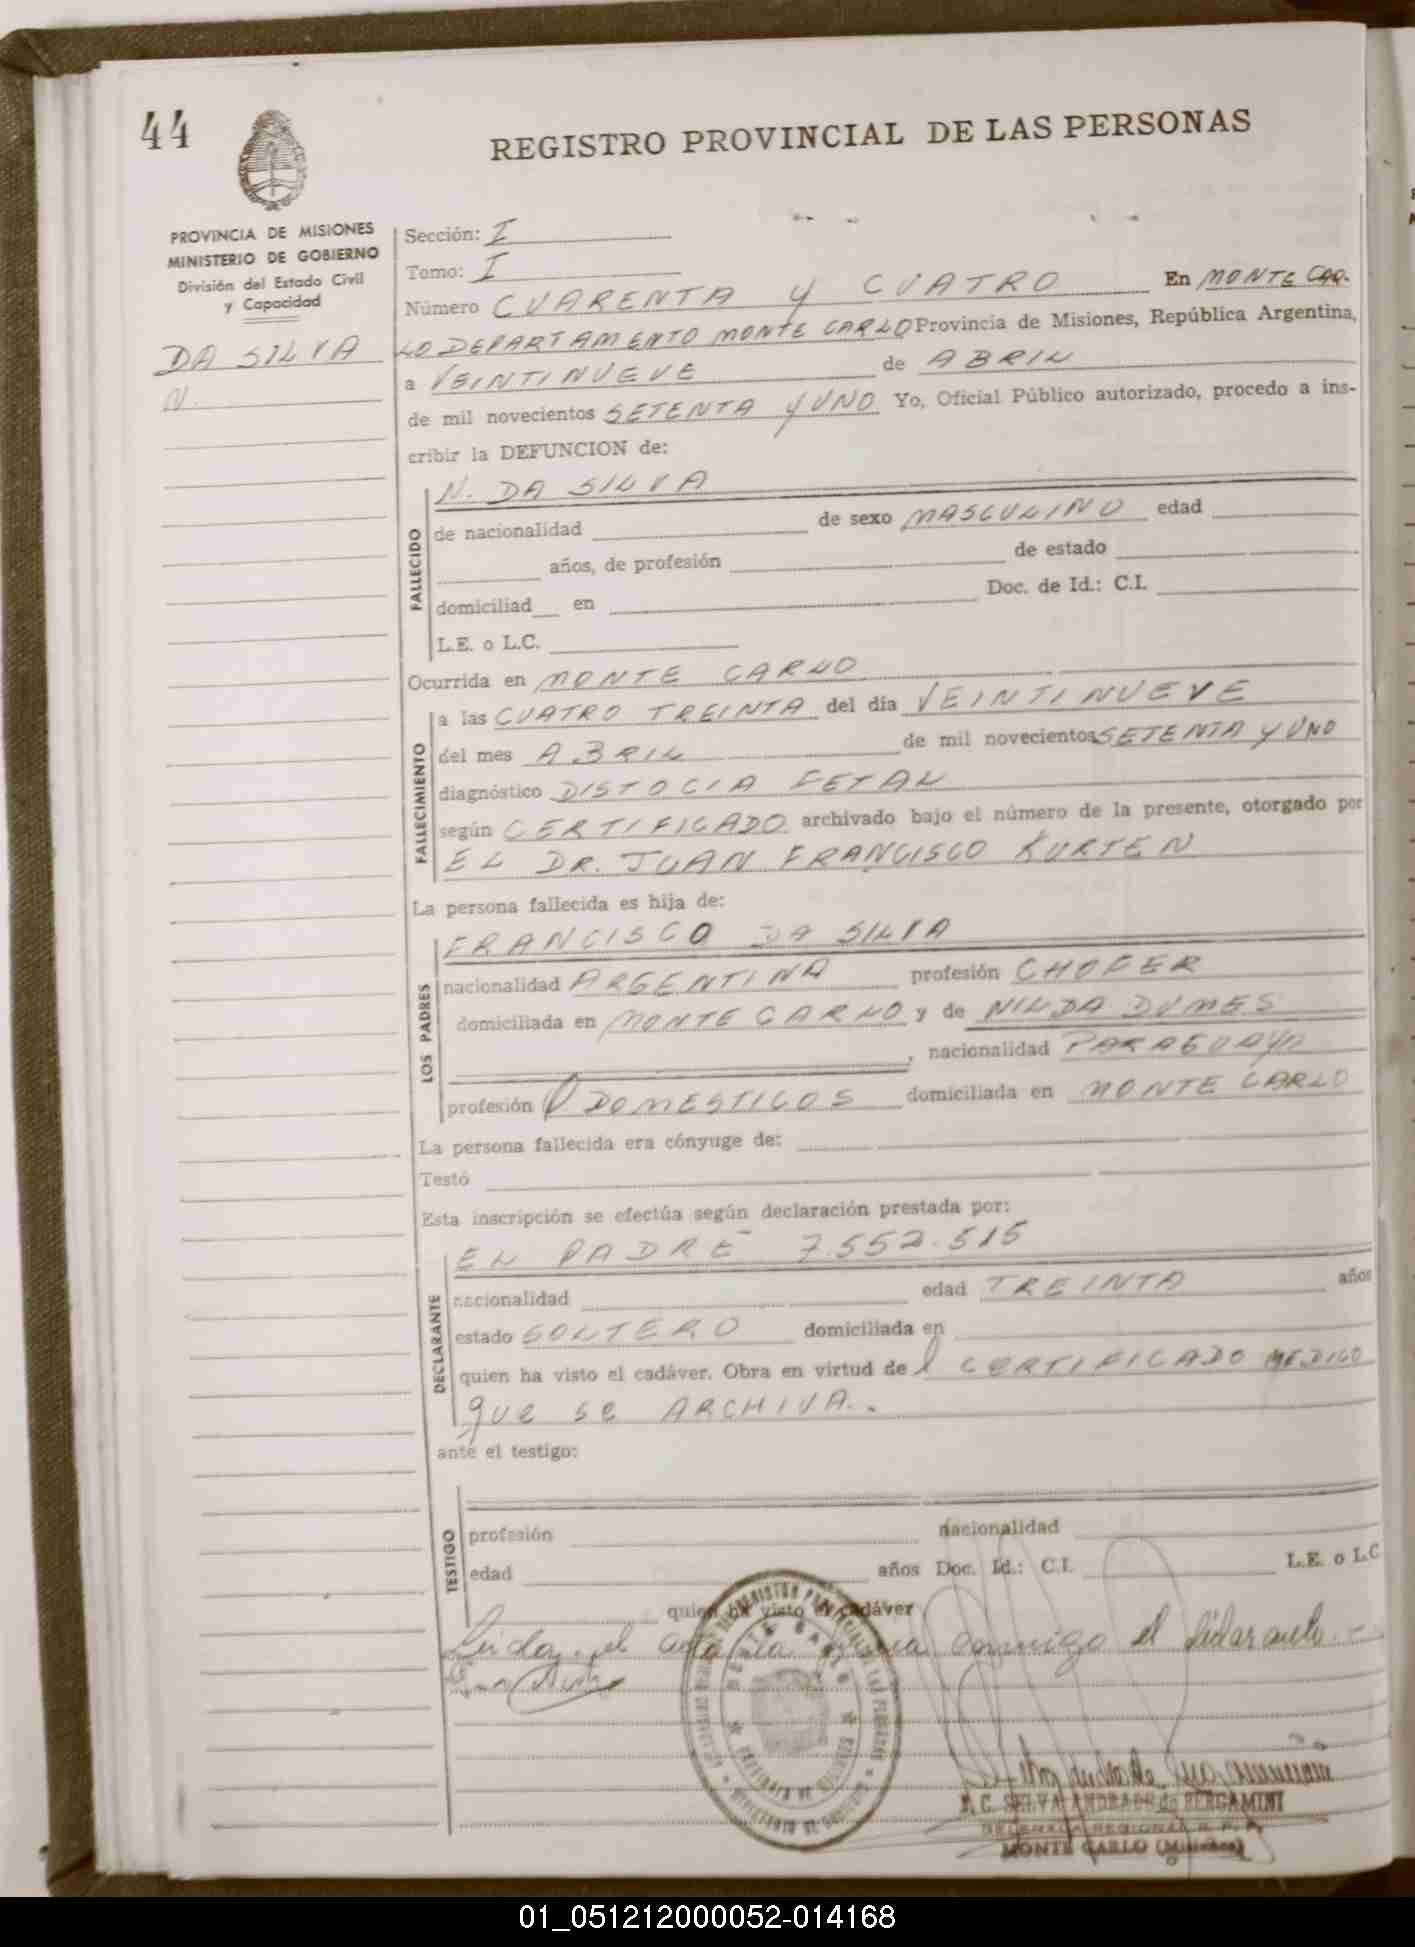 44
REGISTRO PROVINCIAL DE LAS PERSONAS
PROVINCIA DE MISIONES
MINISTERIO DE GOBIERNO
División del Estado Civil
y Capacidad
DA SILVA
N.
Sección: I
Tomo: I
Número CUARENTA y CUATRO En MONTE CAR-
LO DEPARTAMENTO MONTE CARLO Provincia de Misiones, República Argentina,
a VEINTINUEVE de ABRIL
de mil novecientos SETENTA y UNO Yo, Oficial Público autorizado, procedo a ins-
cribir la DEFUNCION de:
FALLECIDO
N. DA SILVA
de nacionalidad de sexo MASCULINO edad
años, de profesión de estado
domiciliad en Doc. de Id.: C.I.
L.E. o L.C.
Ocurrida en MONTE CARLO
FALLECIMIENTO
a las CUATRO TREINTA del día VEINTINUEVE
del mes ABRIL de mil novecientos SETENTA y UNO
diagnóstico DISTOCIA FETAL
según CERTIFICADO archivado bajo el número de la presente, otorgado por
EL DR. JUAN FRANCISCO KURTEN
La persona fallecida es hija de:
LOS PADRES
FRANCISCO DA SILVA
nacionalidad ARGENTINA profesión CHOFER
domiciliada en MONTE CARLO y de NILDA DUMES
, nacionalidad PARAGUAYA
profesión Q DOMESTICOS domiciliada en MONTE CARLO
La persona fallecida era cónyuge de:
Testó
Esta inscripción se efectúa según declaración prestada por:
DECLARANTE
EL PADRE 7.552.515
nacionalidad edad TREINTA años
estado SOLTERO domiciliada en
quien ha visto el cadáver. Obra en virtud del CERTIFICADO MEDICO
que se ARCHIVA.
ante el testigo:
TESTIGO
profesión nacionalidad
edad años Doc. Id.: C.I. L.E. o L.C
quien ha visto el cadáver
Leida el acta la firma conmigo el
MONTE CARLO
P. C. SELVA ANDRADE de BERGAMINI
DELEGADA REGIONAL R. P. P.
MONTE CARLO (Misiones)
01_051212000052-014168